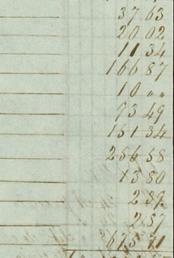 37.63
20.02
11.34
166 87
10 „„
73.49
151 34
256 58
13 50
2.87
2.57